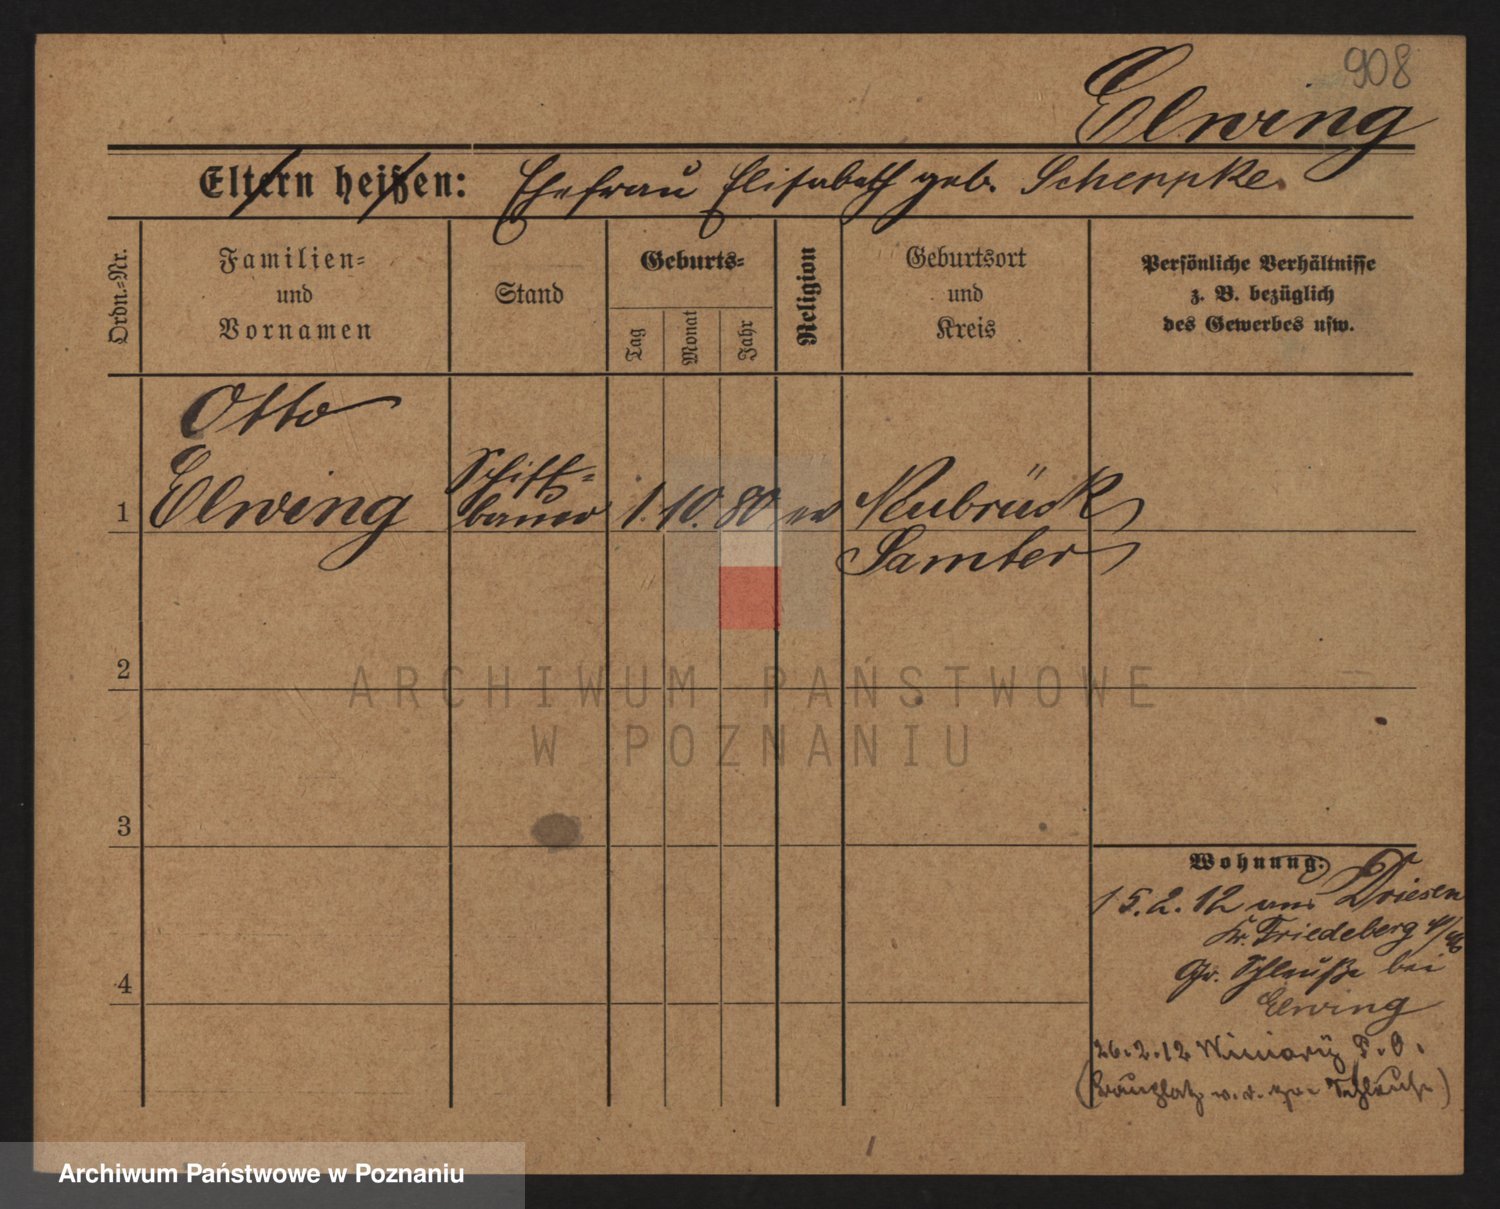 908
Elwing
Eltern heißen: Ehefrau Elisabeth geb. Scheppke.
Ordn.=Nr.
Familien=
und
Vornamen
Stand
Geburts=
Tag
Monat
Jahr
Religion
Geburtsort
und
Kreis
Persönliche Verhältnisse
z. B. bezüglich
des Gewerbes usw.
Otto
1 Elwing Schiff=
bauer 1. 10. 80 ev Neubrück
Samter
2
ARCHIWUM PAŃSTWOWE
W POZNANIU
3
4
Wohnung:
15.2.12 aus Driesen
Kr. Friedeberg
Gr. Schleuße bei
Elwing
26.2.12 Winiary P.O.
(Bauplatz v. d. gr. Schleuße)
Archiwum Państwowe w Poznaniu